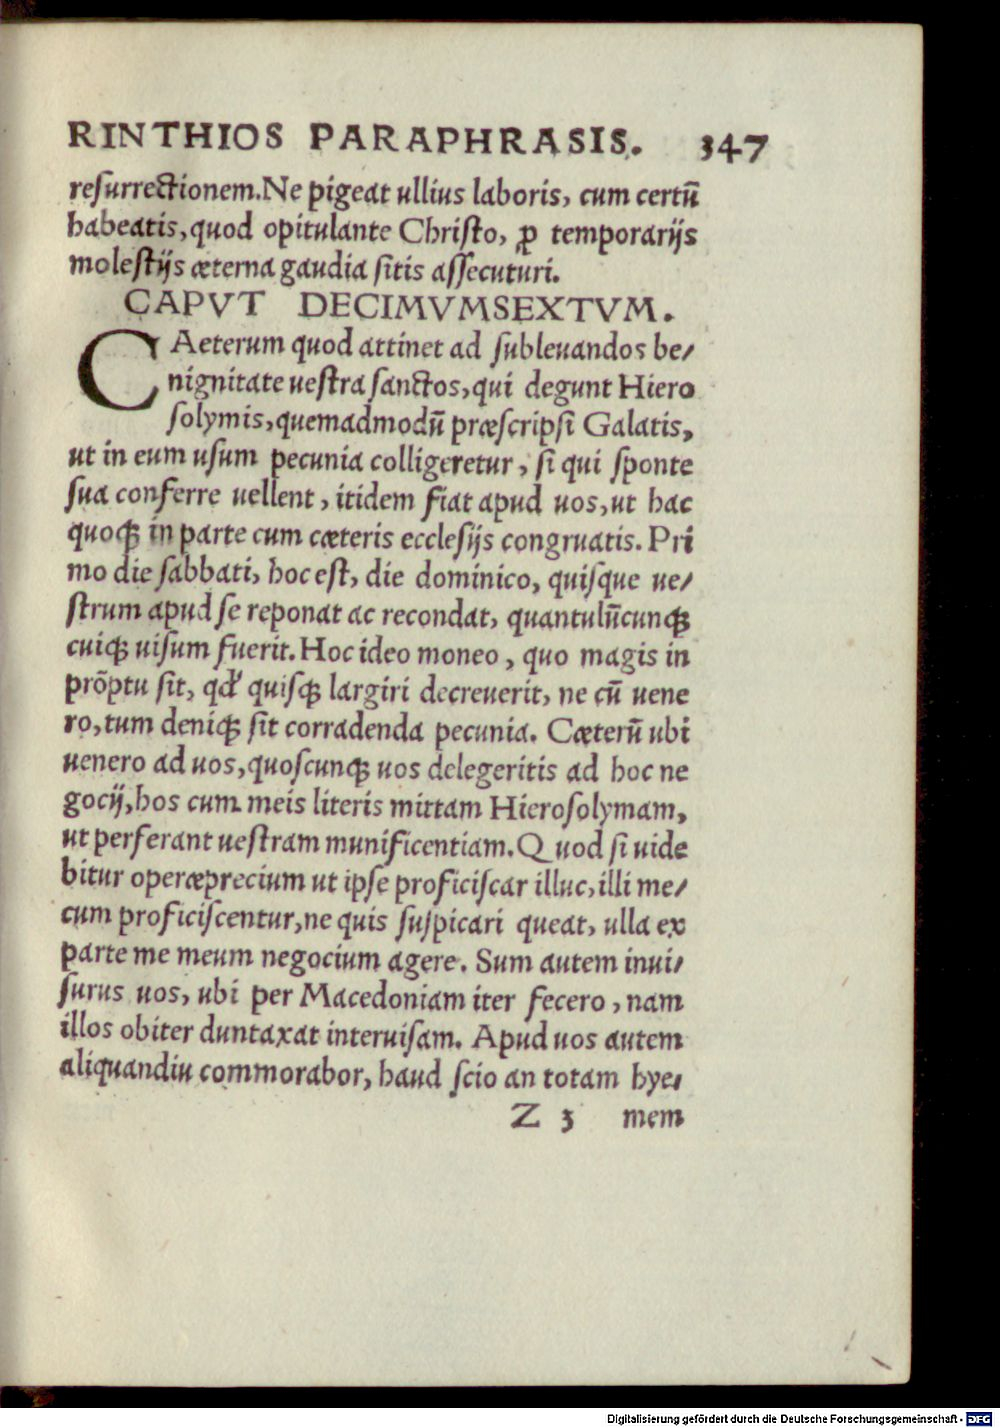 RINTHIOS PARAPHRASIS. 347
resurrectionem. Ne pigeat ullius laboris, cum certū
habeatis, quod opitulante Christo, ꝓ temporarijs
molestijs æterna gaudia sitis assecuturi.
CAPVT DECIMVMSEXTVM.
CAeterum quod attinet ad subleuandos be/
nignitate uestra sanctos, qui degunt Hiero
solymis, quemadmodū præscripsi Galatis,
ut in eum usum pecunia colligeretur, si qui sponte
sua conferre uellent, itidem fiat apud uos, ut hac
quoqꝫ in parte cum cæteris ecclesijs congruatis. Pri
mo die sabbati, hoc est, die dominico, quisque ue/
strum apud se reponat ac recondat, quantulūcunqꝫ
cuiqꝫ uisum fuerit. Hoc ideo moneo, quo magis in
prōptu sit, qd' quisqꝫ largiri decreuerit, ne cū uene
ro, tum deniqꝫ sit corradenda pecunia. Cæterū ubi
uenero ad uos, quoscunqꝫ uos delegeritis ad hoc ne
gocij, hos cum meis literis mittam Hierosolymam,
ut perferant uestram munificentiam. Quod si uide
bitur operæprecium ut ipse proficiscar illuc, illi me/
cum proficiscentur, ne quis suspicari queat, ulla ex
parte me meum negocium agere. Sum autem inui/
surus uos, ubi per Macedoniam iter fecero, nam
illos obiter duntaxat interuisam. Apud uos autem
aliquandiu commorabor, haud scio an totam hye/
Z 3 mem
Digitalisierung gefördert durch die Deutsche Forschungsgemeinschaft - DFG